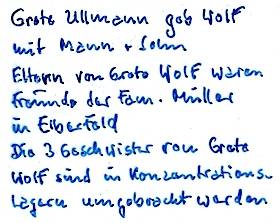 Grete Ullmann geb Wolf
mit Mann + Sohn
Eltern von Grete Wolf waren
Freunde der Fam. Müller
in Elberfeld
Die 3 Geschwister von Grete
Wolf sind in Konzentrations-
Lägern umgebracht worden